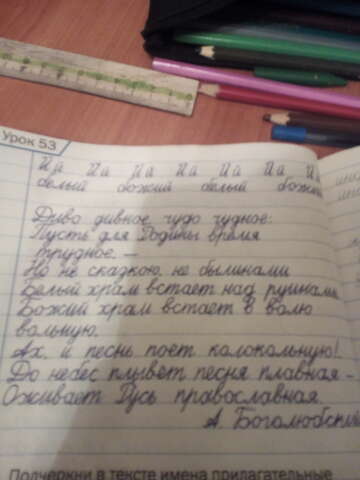 Урок 53
Й й Й й Й й Й й Й й Й й Й
белый божий белый божий
Диво дивное, чудо чудное:
Пусть для Родины время
трудное, –
Но не сказкою, не былинами
Белый храм встает над руинами.
Божий храм встает в волю
вольную,
Ах, и песнь поет колокольную!
До небес плывет песня плавная –
Оживает Русь православная.
А. Боголюбский
Подчеркни в тексте имена прилагательные